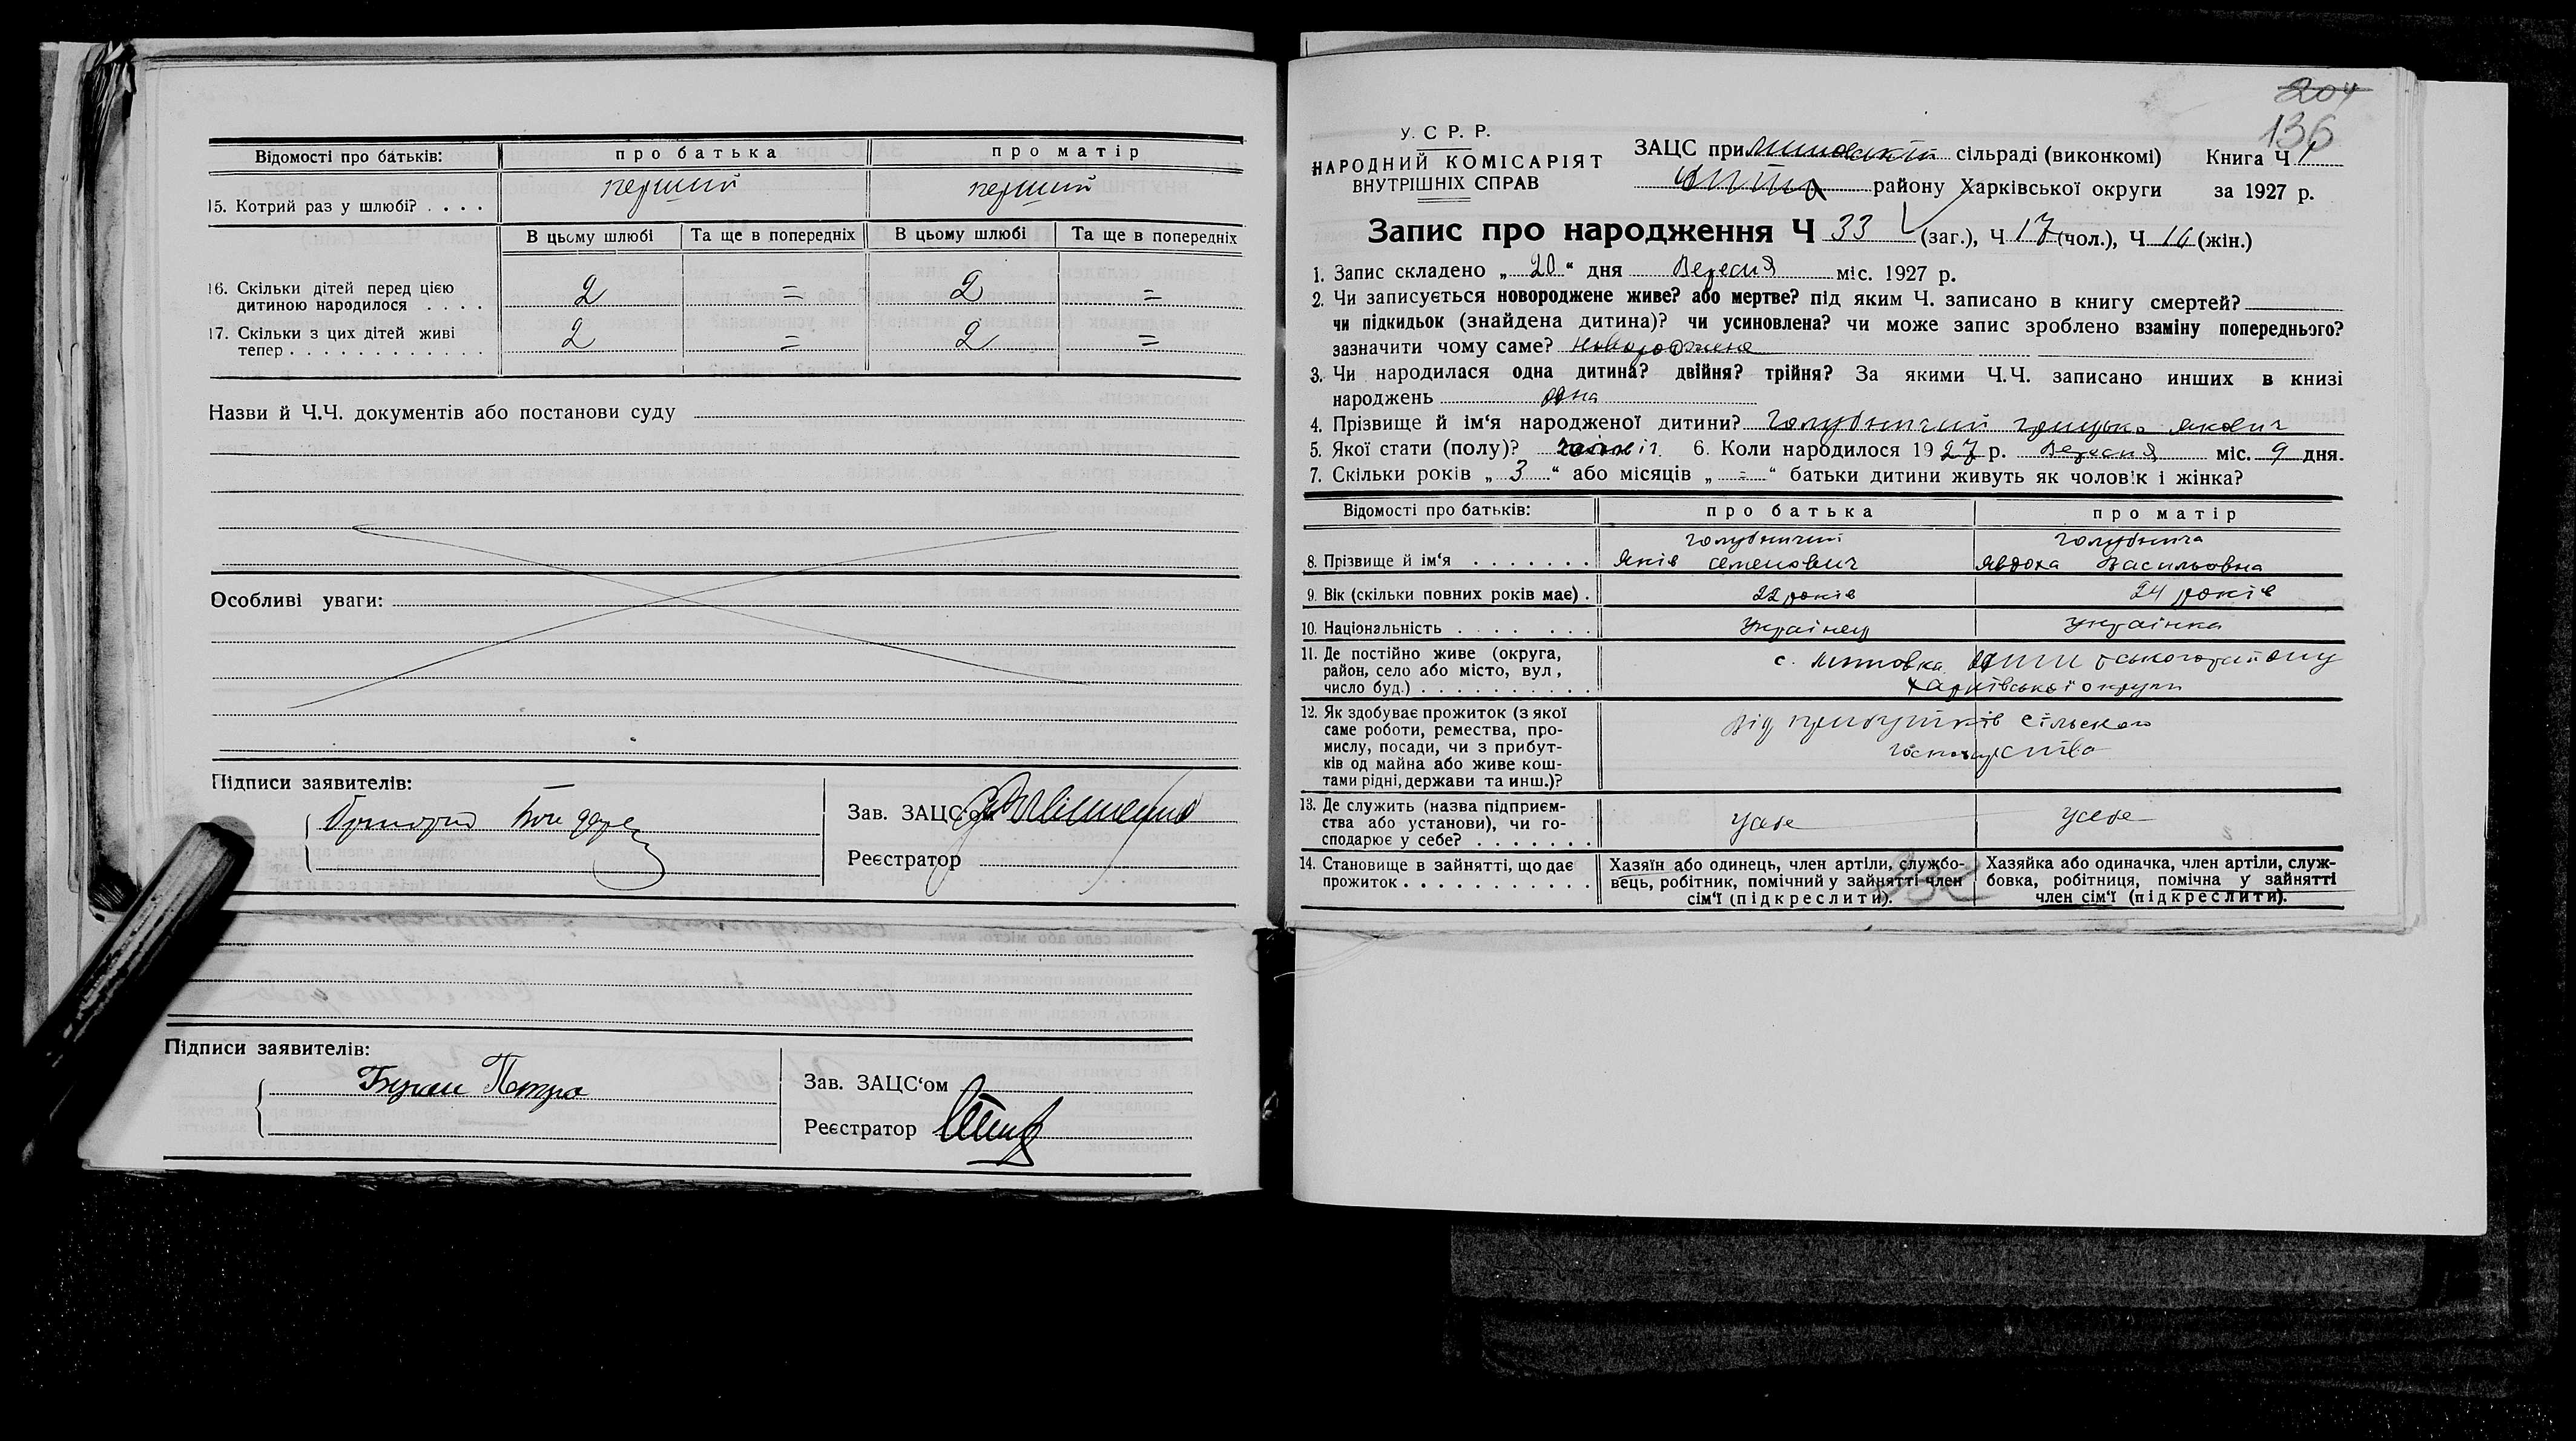 Відомості про батьків: про батька про матір
15. Котрий раз у шлюбі? . . . . перший перший
В цьому шлюбі Та ще в попередніх В цьому шлюбі Та ще в попередніх
16. Скільки дітей перед цією
дитиною народилося . . . . 2 = 2 =
17. Скільки з цих дітей живі
тепер . . . . . . . . . . . . 2 = 2 =
Назви й Ч.Ч. документів або постанови суду
Особливі уваги:
Підписи заявителів:
Зав. ЗАЦС'ом
Реєстратор
Підписи заявителів:
Петро
Зав. ЗАЦС'ом
Реєстратор
204
136
У. С Р. Р.
НАРОДНИЙ КОМІСАРІЯТ
ВНУТРІШНІХ СПРАВ
ЗАЦС при сільраді (виконкомі) Книга Ч 1
району Харківської округи за 1927 р.
Запис про народження Ч 33 (заг.), Ч 17 (чол.), Ч 16 (жін.)
1. Запис складено „ 20 “ дня Вересня міс. 1927 р.
2. Чи записується новороджене живе? або мертве? під яким Ч. записано в книгу смертей?
чи підкидьок (знайдена дитина)? чи усиновлена? чи може запис зроблено взаміну попереднього?
зазначити чому саме? новороджена
3. Чи народилася одна дитина? двійня? трійня? За якими Ч.Ч. записано инших в книзі
народжень одна
4. Прізвище й ім'я народженої дитини? Голубничий Грицько Якович
5. Якої стати (полу)? 6. Коли народилося 1927 р. Вересня міс. 9 дня.
7. Скільки років „ 3 “ або місяців „ = “ батьки дитини живуть як чоловік і жінка?
Відомості про батьків: про батька про матір
Голубничий Голубнича
8. Прізвище й ім'я . . . . . . . Яків Семенович Явдоха Васильовна
9. Вік (скільки повних років має) . 22 років 24 років
10. Національність . . . . . . . Українец українка
11. Де постійно живе (округа,
район, село або місто, вул.,
число буд.) . . . . . . . . . . с. району
Харківської округи
12. Як здобуває прожиток (з якої
саме роботи, ремества, про-
мислу, посади, чи з прибут-
ків од майна або живе кош-
тами рідні, держави та инш.)?
від прибутків сільского
господарства
13. Де служить (назва підприєм-
ства або установи), чи го-
сподарює у себе? . . . . . . . усебе усебе
14. Становище в зайнятті, що дає
прожиток . . . . . . . . . . .
Хазяїн або одинець, член артіли, службо-
вець, робітник, помічний у зайнятті член
сім'ї (підкреслити).
Хазяйка або одиначка, член артіли, служ-
бовка, робітниця, помічна у зайнятті
член сім'ї (підкреслити).